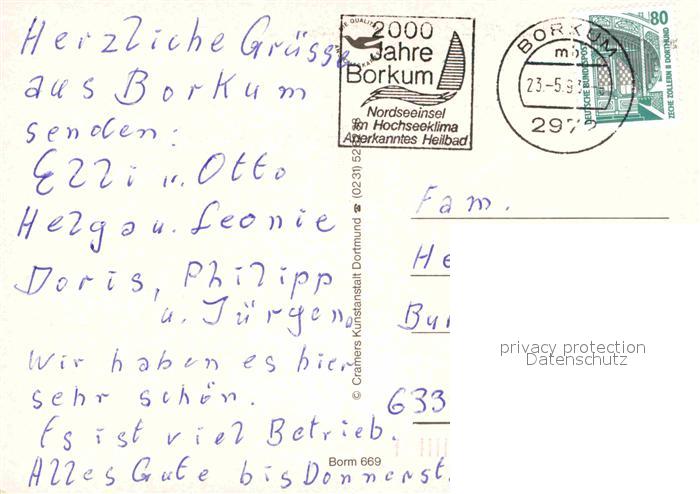 Herzliche Grüsse
aus Borkum
senden:
Elli u. Otto
Helga u. Leonie
Doris, Philipp
u. Jürgen.
Wir haben es hier
sehr schön.
Es ist viel Betrieb.
Alles Gute bis Donnerst.
2000
Jahre
Borkum
Nordseeinsel
im Hochseeklima
Anerkanntes Heilbad
BORKUM
23.-5.9
297
80
DEUTSCHE BUNDESPOST
ZECHE ZOLLERN II DORTMUND
© Cramers Kunstanstalt Dortmund ☎ (0231)
Borm 669
Fam.
He
Bu
633
privacy protection
Datenschutz